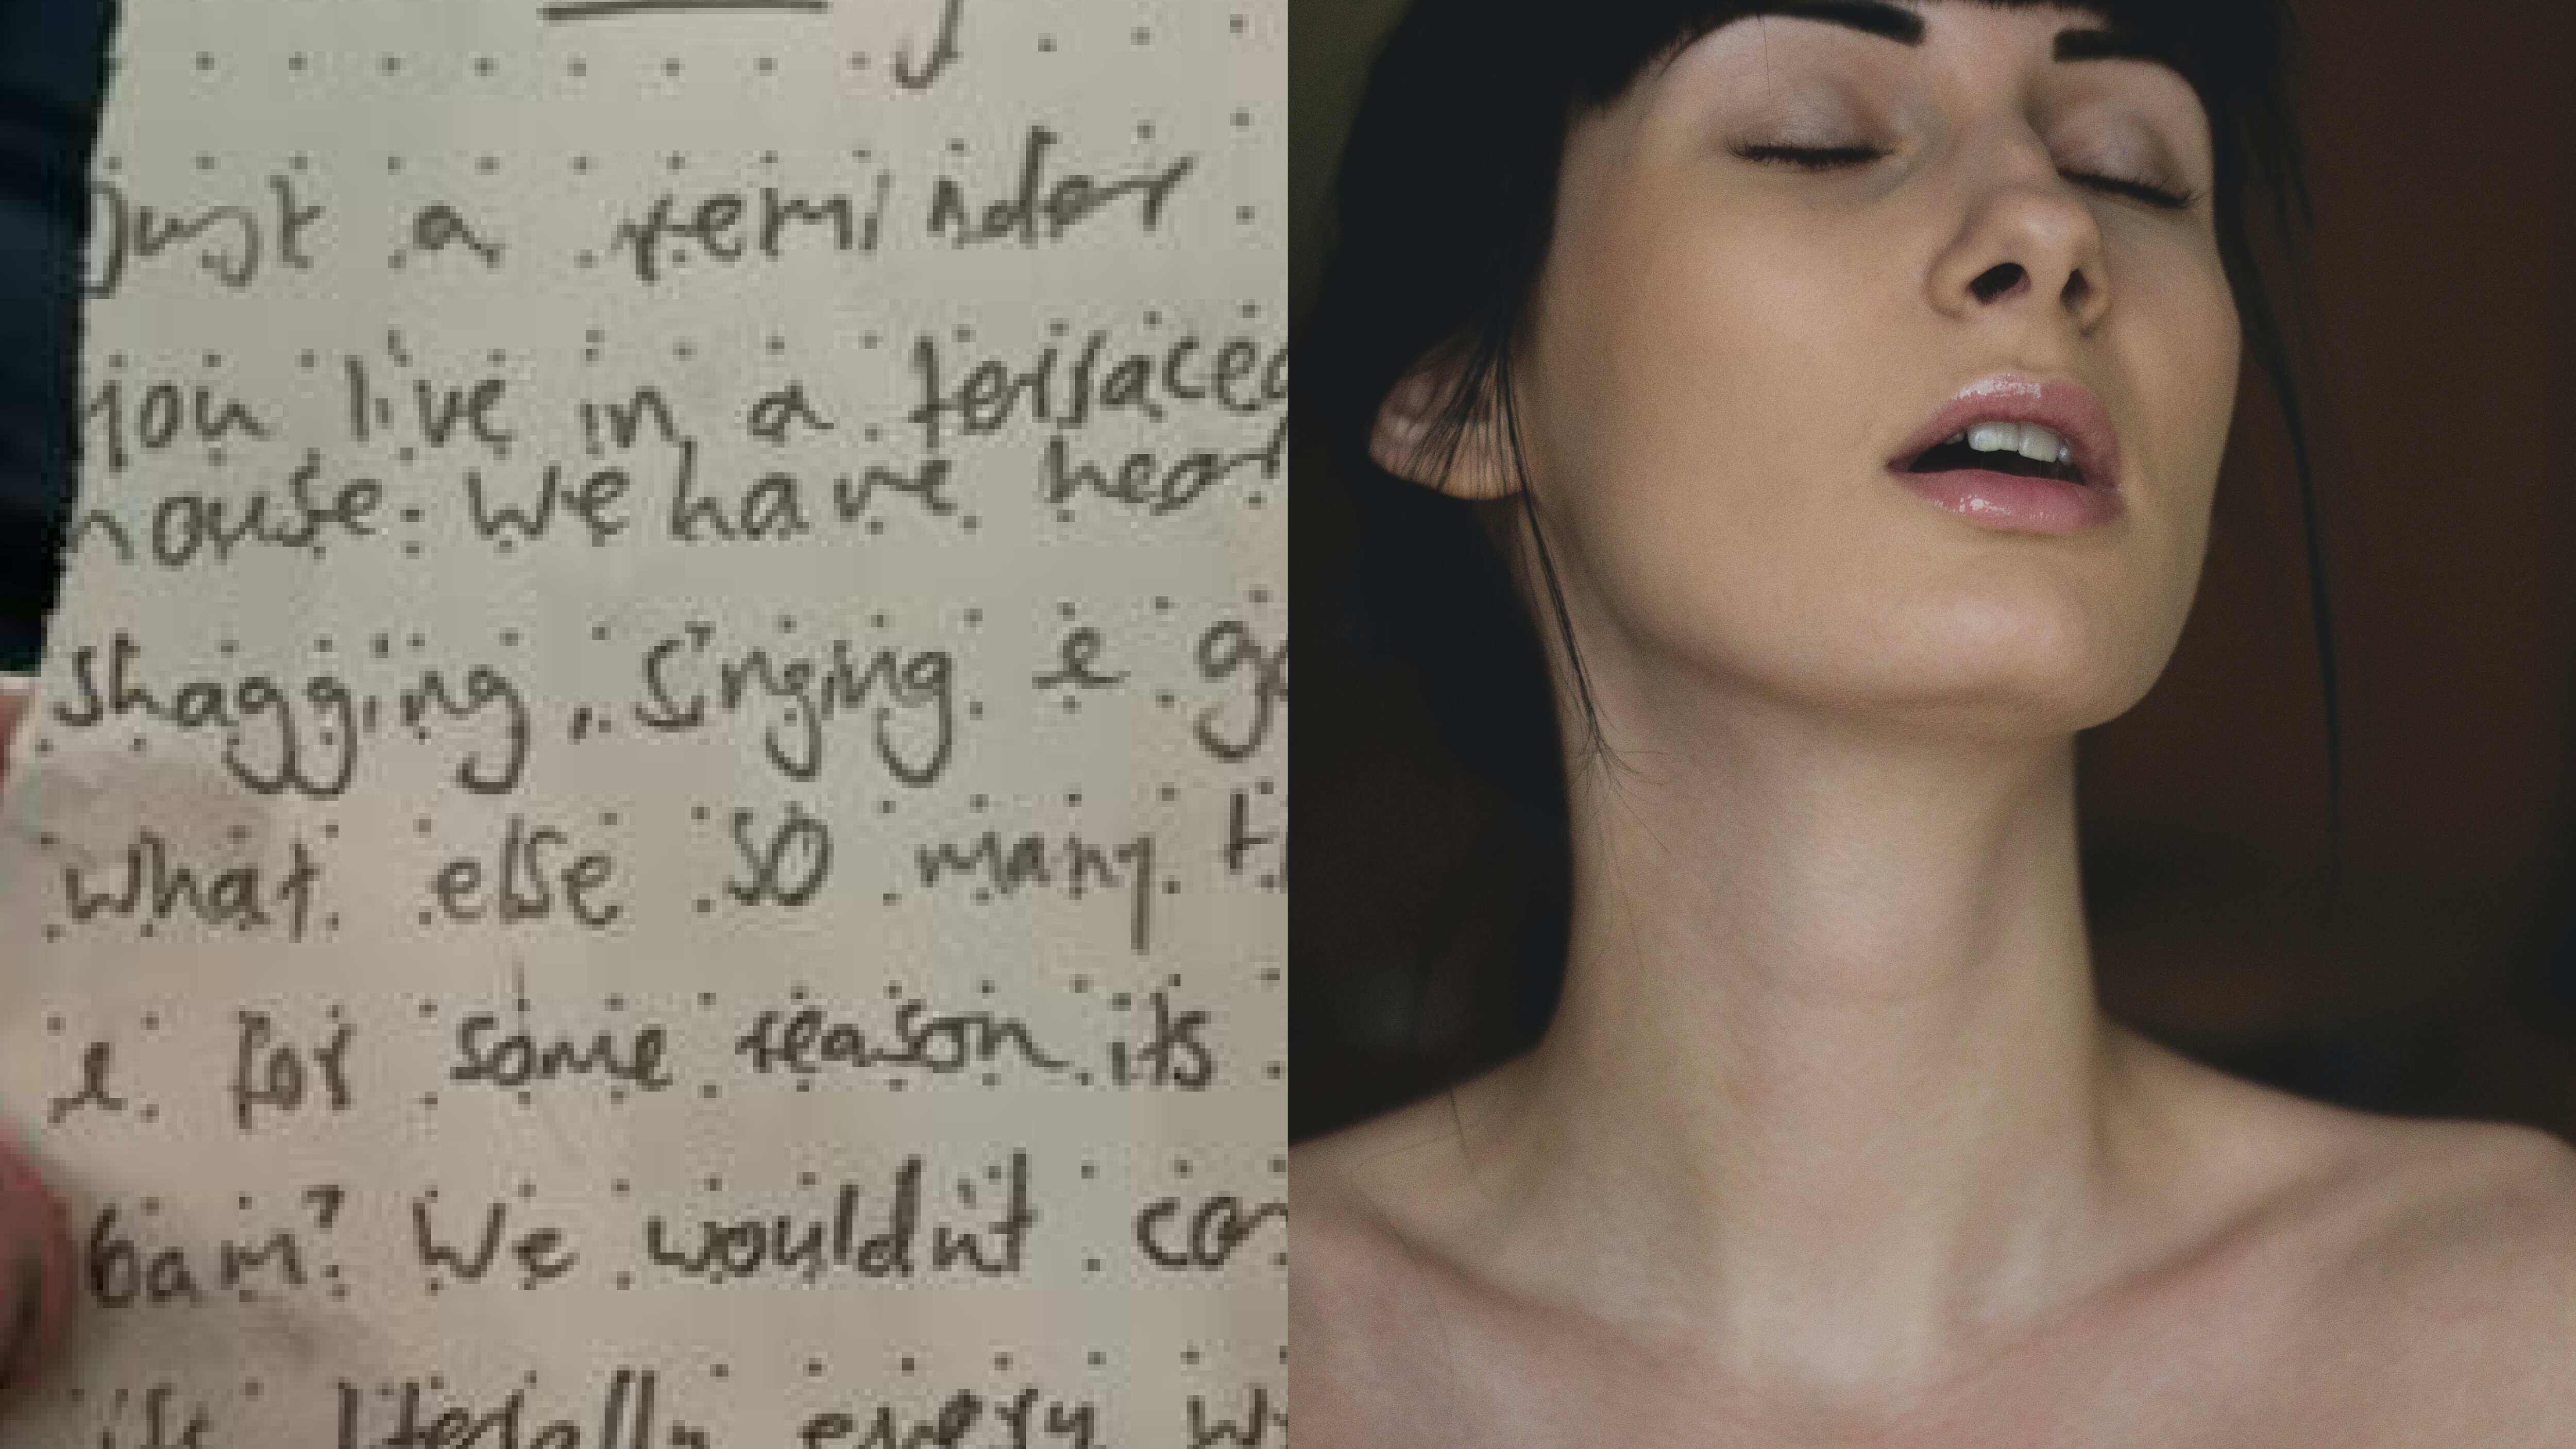 Just a reminder
you live in a terraced
house. We have hear
shagging, singing &
what else so many
& for some reason its
6am? We wouldn't
its literally every